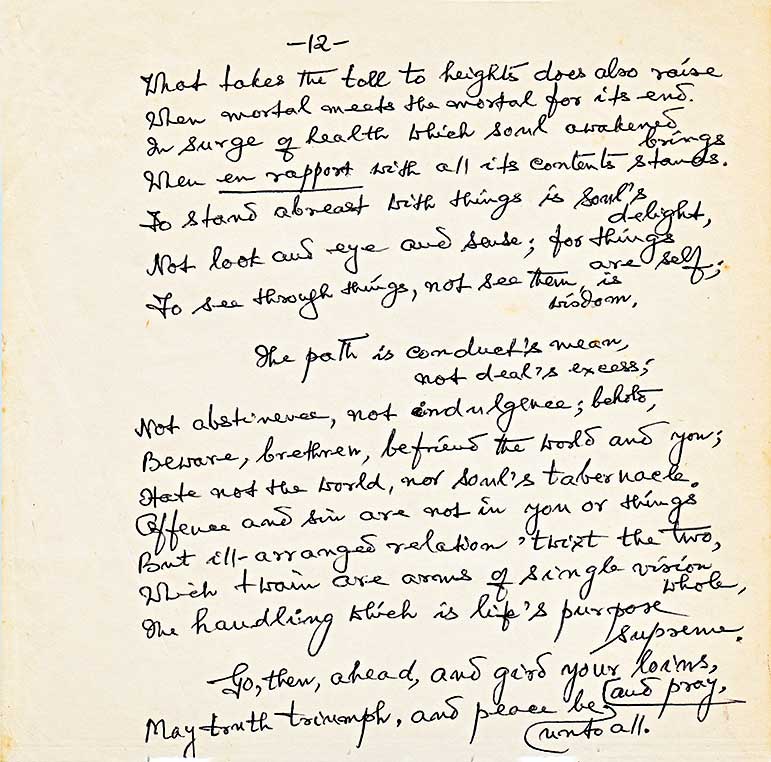 -12-
What takes the toll to heights does also raise
When mortal meets the mortal for its end.
In surge of health which soul awakened
brings
When en rapport with all its contents stands.
To stand abreast with things is soul's
delight,
Not look and eye and sense; for things
are self;
To see through things, not see them, is
wisdom.
The path is conduct's mean,
not deal's excess;
Not abstinence, not indulgence; behold,
Beware, brethren, befriend the world and you;
Hate not the world, nor soul's tabernacle.
Offence and sin are not in you or things
But ill-arranged relation 'twixt the two,
Which twain are arms of single vision
whole,
The handling which is life's purpose
supreme.
Go, then, ahead, and gird your loins,
and pray.
May truth triumph, and peace be
unto all.